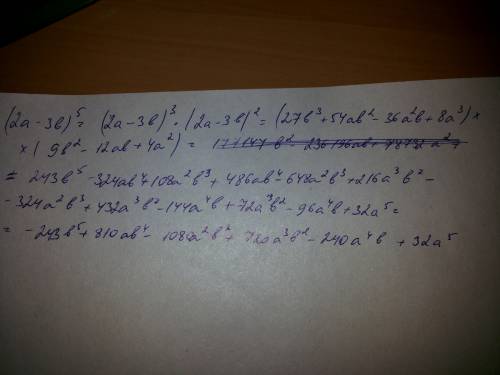 (2a-3b)⁵= (2a-3b)³·(2a-3b)²=(27b³+54ab²-36a²b+8a³)×
×(9b²-12ab+4a²)=
= 243b⁵-324ab⁴+108a²b³+486ab⁴-648a²b³+216a³b²-
-324a²b³+432a³b²-144a⁴b+72a³b²-96a⁴b+32a⁵=
= -243b⁵+810ab⁴-1080a²b²+720a³b²-240a⁴b+32a⁵